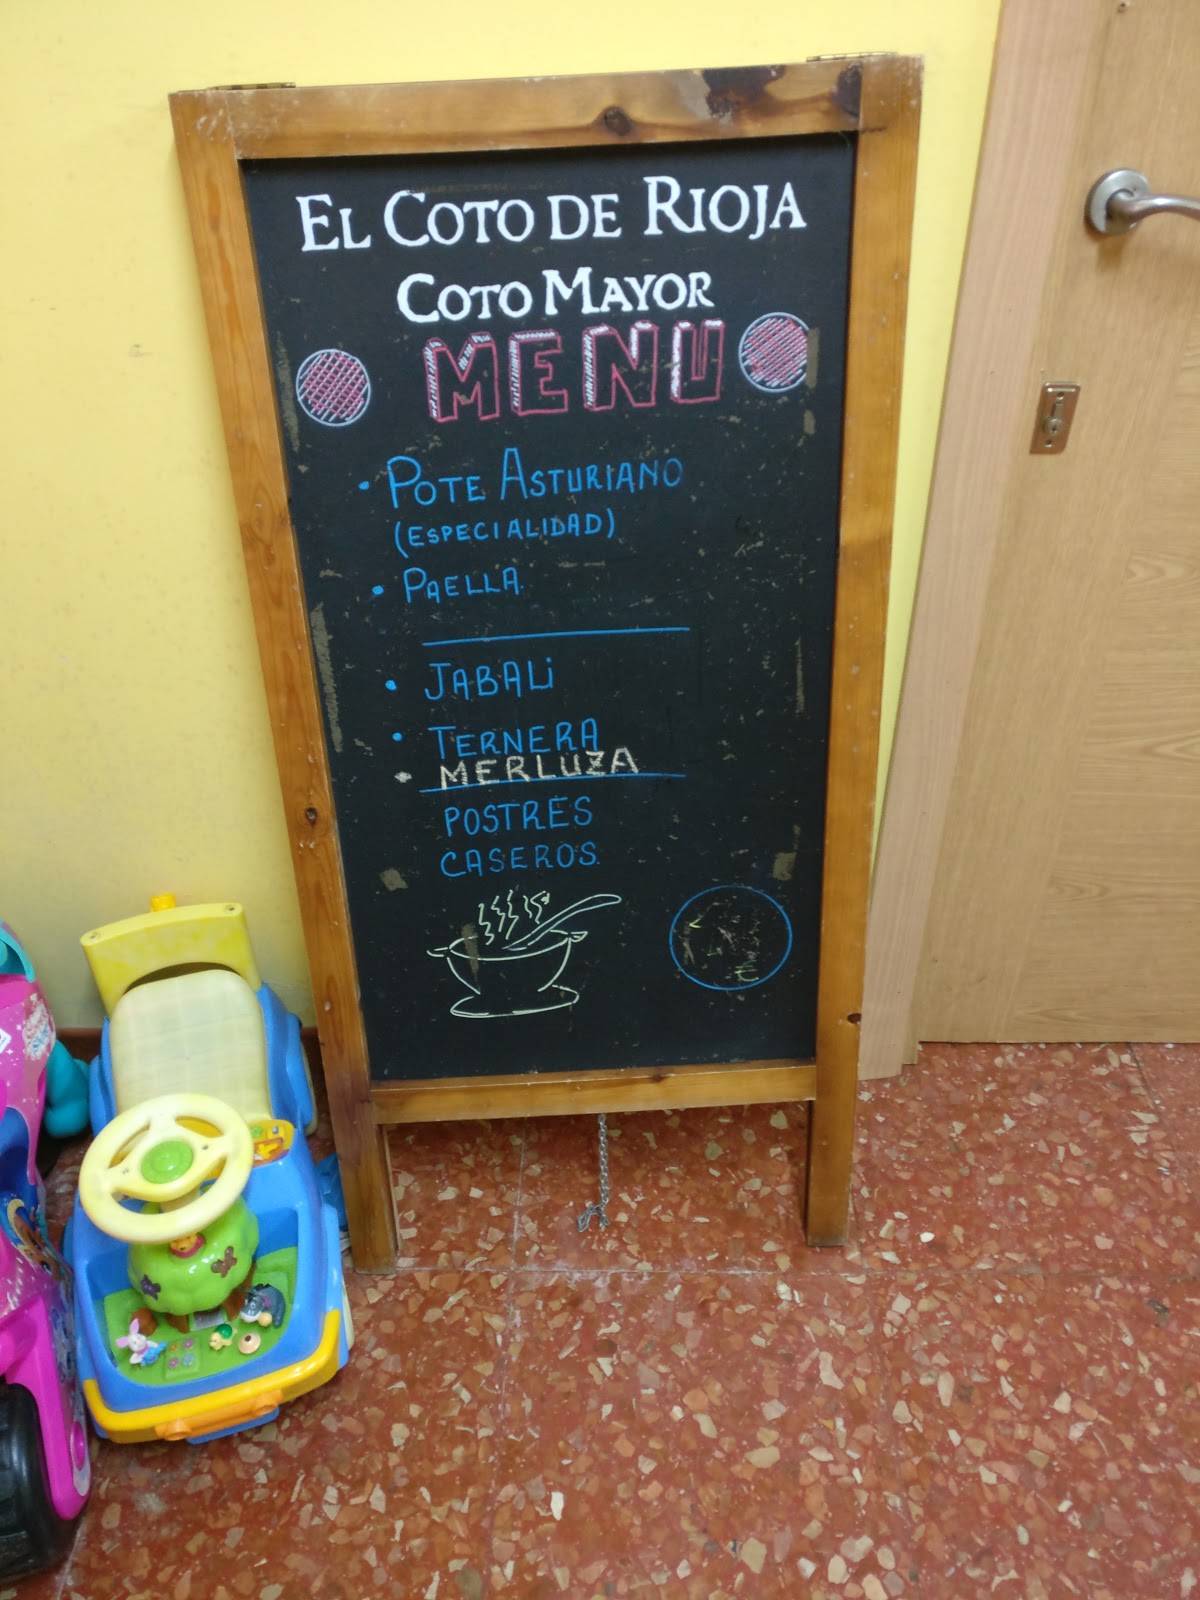 EL COTO DE RIOJA
COTO MAYOR
MENU
• POTE ASTURIANO
(ESPECIALIDAD)
• PAELLA
• JABALi
• TERNERA
• MERLUZA
POSTRES
CASEROS.
€